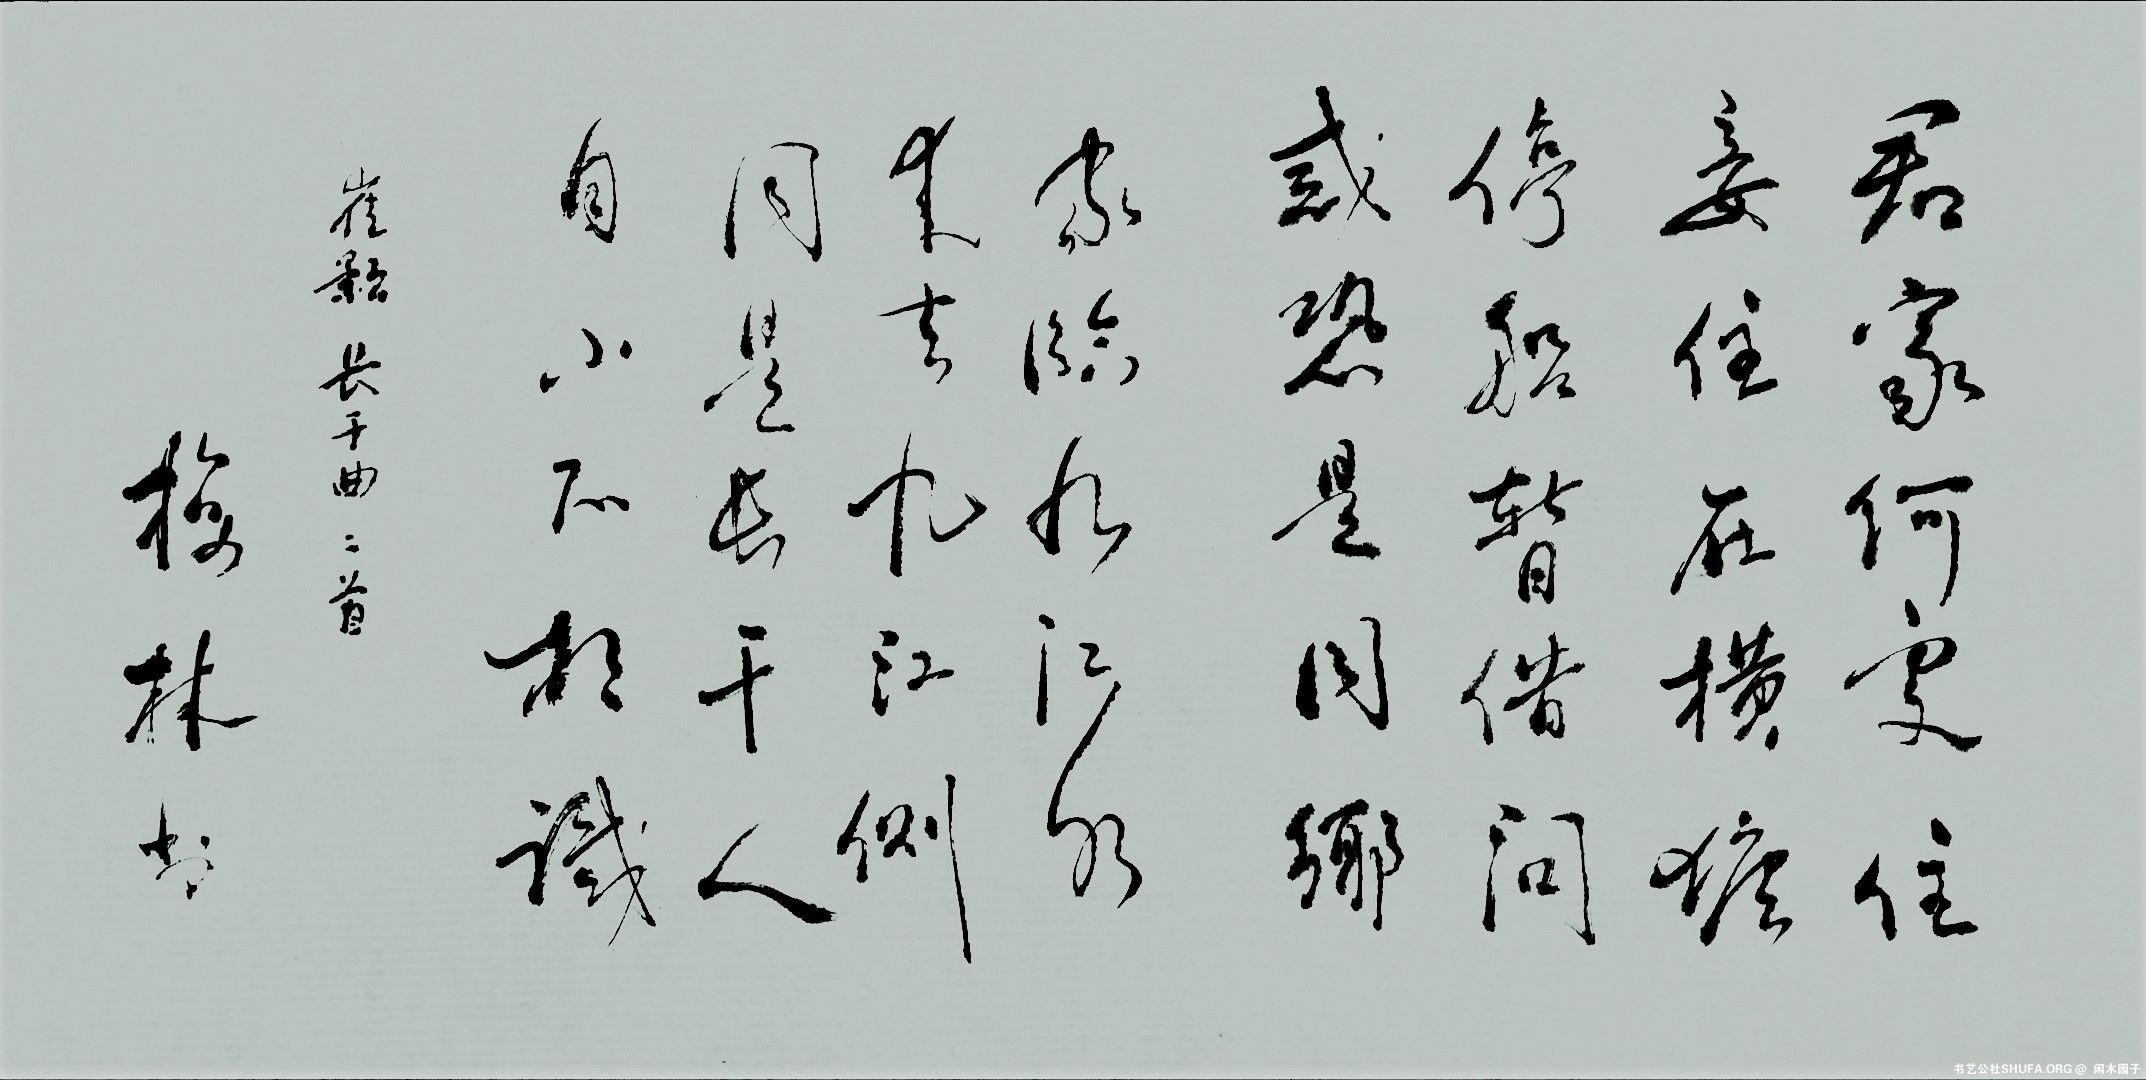 君家何處住
妾住在橫塘
停船暫借問
或恐是同鄉
家臨九江水
來去九江側
同是長干人
自小不相識
崔顥 長干曲 二首
林书
书艺公社SHUFA.ORG @ 闲木园子